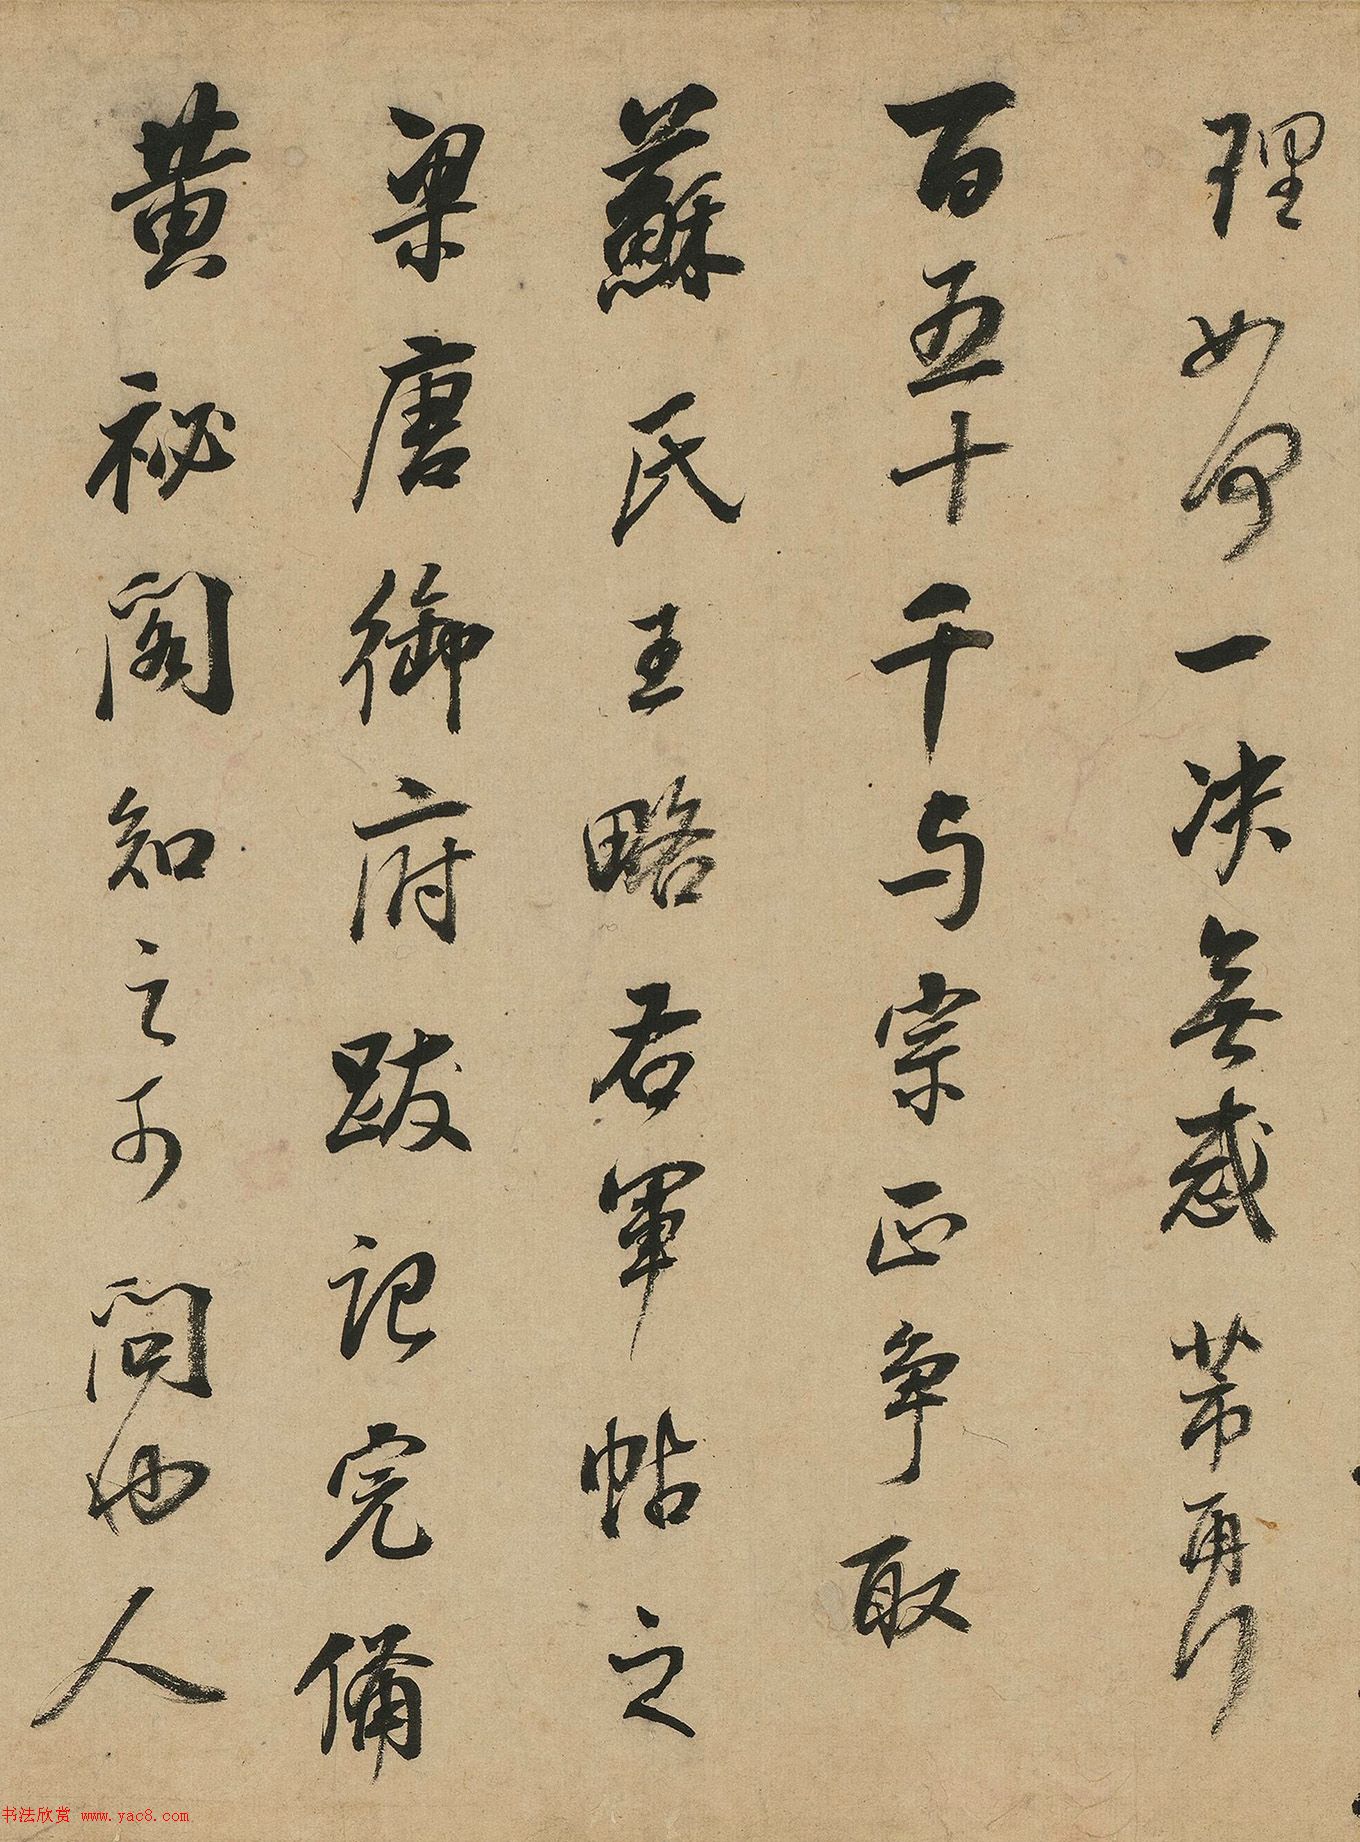 理如何一决無惑芾再拜
百五十千与宗正争取
蘇氏王略右軍帖之
梁唐御府跋記完備
黄秘閣知之可問也人
书法欣赏 www.yac8.com